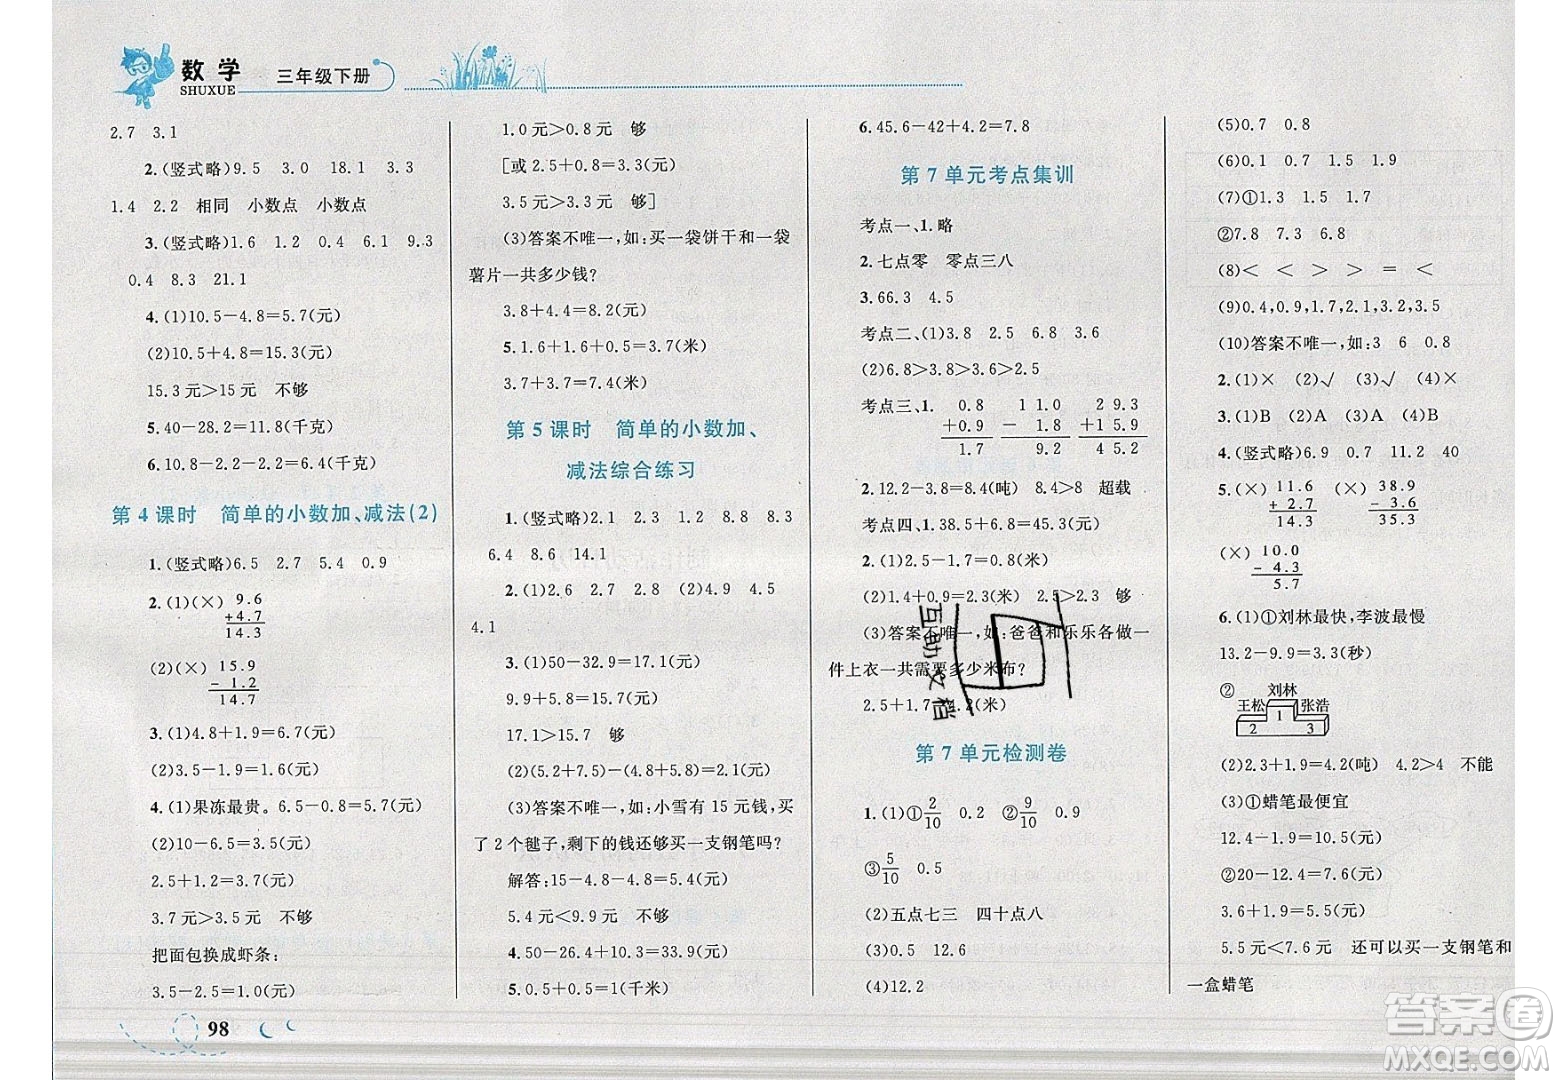 数学
SHUXUE
三年级下册
2.7 3.1
2.(竖式略)9.5 3.0 18.1 3.3
1.4 2.2 相同 小数点 小数点
3.(竖式略)1.6 1.2 0.4 6.1 9.3
0.4 8.3 21.1
4.(1)10.5-4.8=5.7(元)
(2)10.5+4.8=15.3(元)
15.3元>15元 不够
5.40-28.2=11.8(千克)
6.10.8-2.2-2.2=6.4(千克)
第4课时 简单的小数加、减法(2)
1.(竖式略)6.5 2.7 5.4 0.9
2.(1)(×) 9.6
+4.7
14.3
(2)(×) 15.9
- 1.2
14.7
3.(1)4.8+1.9=6.7(元)
(2)3.5-1.9=1.6(元)
4.(1)果冻最贵。6.5-0.8=5.7(元)
(2)10-6.5=3.5(元)
2.5+1.2=3.7(元)
3.7元>3.5元 不够
把面包换成虾条:
3.5-2.5=1.0(元)
98
1.0元>0.8元 够
[或2.5+0.8=3.3(元)
3.5元>3.3元 够]
(3)答案不唯一,如:买一袋饼干和一袋
薯片一共多少钱?
3.8+4.4=8.2(元)
5.1.6+1.6+0.5=3.7(米)
3.7+3.7=7.4(米)
第5课时 简单的小数加、
减法综合练习
1.(竖式略)2.1 2.3 1.2 8.8 8.3
6.4 8.6 14.1
2.(1)2.6 2.7 2.8 (2)4.9 4.5
4.1
3.(1)50-32.9=17.1(元)
9.9+5.8=15.7(元)
17.1>15.7 够
(2)(5.2+7.5)-(4.8+5.7)=2.2(元)
(3)答案不唯一,如:小雪有15元钱,买
了2个毽子,剩下的钱还够买一支钢笔吗?
解答:15-4.8-4.8=5.4(元)
5.4元<9.9元 不够
4.50-26.4+10.3=33.9(元)
5.0.5+0.5=1(千米)
6.45.6-42+4.2=7.8
第7单元考点集训
考点一、1.略
2.七点零 零点三八
3.66.3 4.5
考点二、(1)3.8 2.5 6.8 3.6
(2)6.8>3.8>3.6>2.5
考点三、1. 0.8 11.0 29.3
+0.9 - 1.8 +15.9
1.7 9.2 45.2
2.12.2-3.8=8.4(吨) 8.4>8 超载
考点四、1.38.5+6.8=45.3(元)
2.(1)2.5-1.7=0.8(米)
(2)1.4+0.9=2.3(米) 2.5>2.3 够
(3)答案不唯一,如:爸爸和乐乐各做一
件上衣一共需要多少米布?
2.5+1.7=4.2(米)
互助文档
第7单元检测卷
1.(1)①2/10 0.2 ②9/10 0.9
③5/10 0.5
(2)五点七三 四十点八
(3)0.5 12.6
(4)12.2
(5)0.7 0.8
(6)0.1 0.7 1.5 1.9
(7)①1.3 1.5 1.7
②7.8 7.3 6.8
(8)< < > > = <
(9)0.4,0.9,1.7,2.1,3.2,3.5
(10)答案不唯一,如:3 6 0.8
2.(1)× (2)√ (3)√ (4)×
3.(1)B (2)A (3)B (4)A
4.(竖式略)6.9 0.9 11.2 40
5.(×) 11.6 (×) 38.9
+ 2.7 - 3.6
14.3 35.3
(×) 10.0
- 4.3
5.7
6.(1)①刘林最快,李波最慢
13.2-9.9=3.3(秒)
② 刘林
王松 1 张浩
2 3
(2)2.3+1.9=4.2(米) 4.2>4 不能
(3)①蜡笔最便宜
12.4-1.9=10.5(元)
②20-12.4=7.6(元)
3.6+1.9=5.5(元)
5.5元<7.6元 还可以买一支钢笔和
一盒蜡笔
答案圈
MXQE.COM